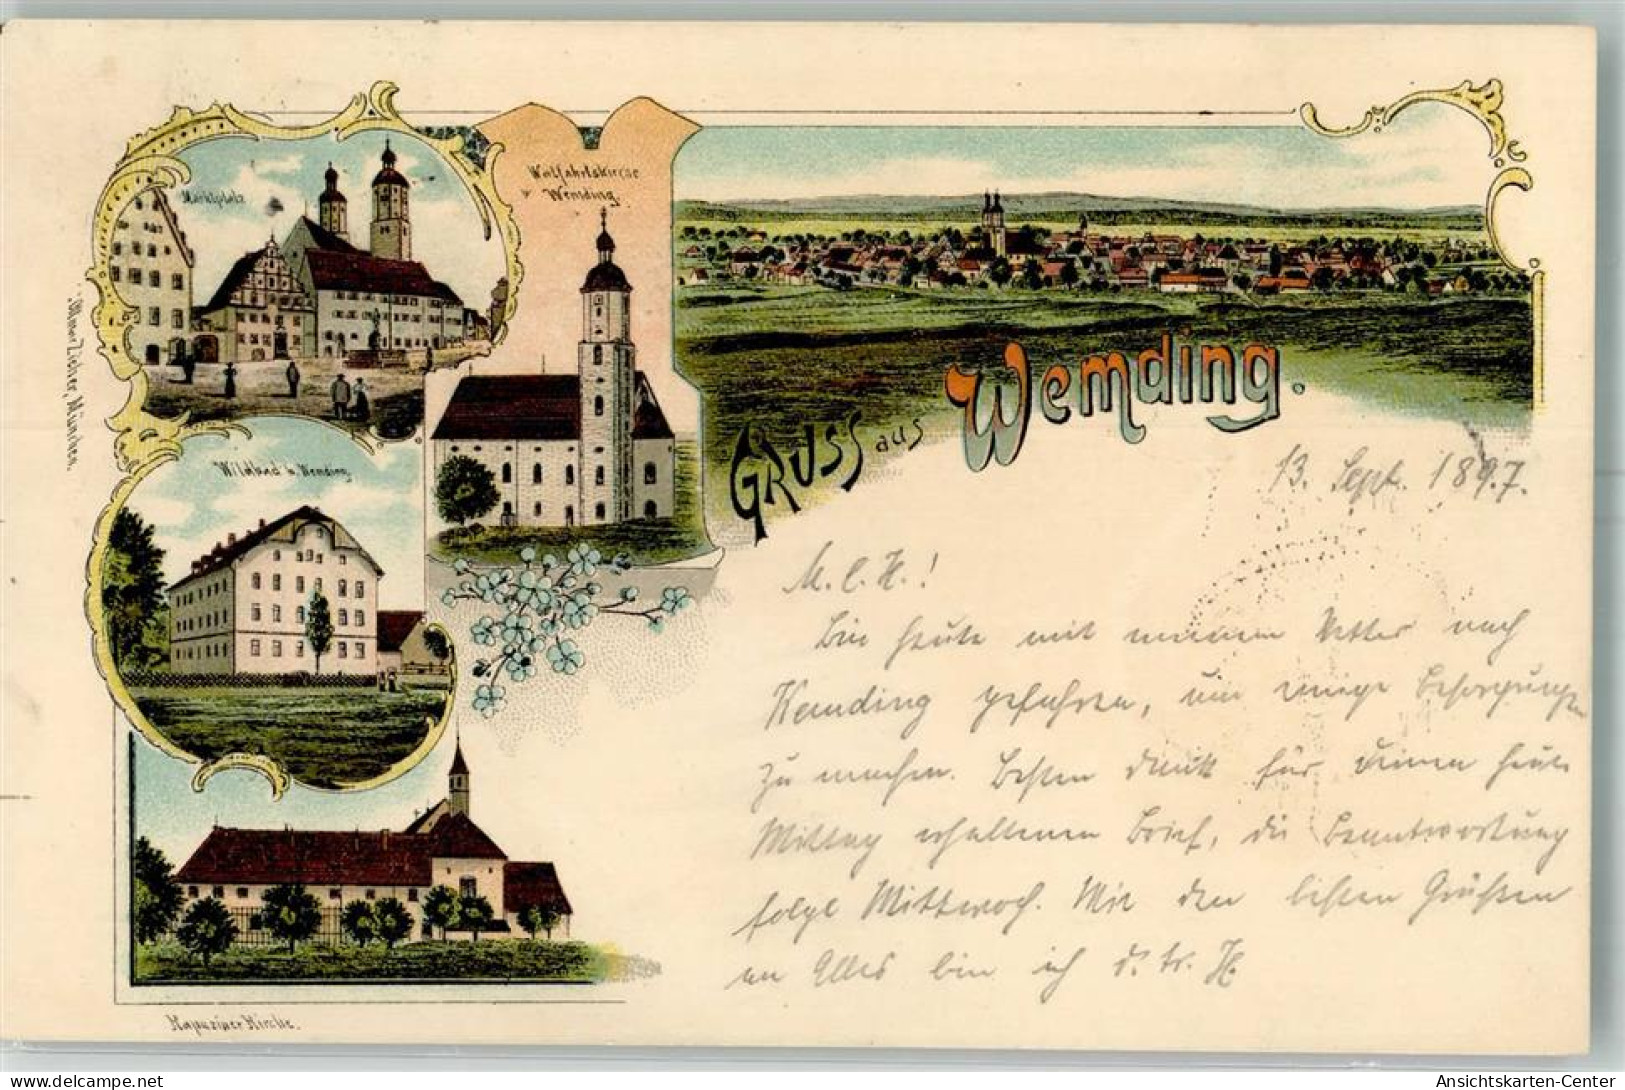 Marktplatz
Wallfahrtskirche
Wemding.
Wildbad b. Wemding.
Ottmar Zieher, München.
Gruss aus Wemding.
13. Sept. 1897.
M. l. H.!
Bin heute mit meinem Vetter nach
Wemding gefahren, um einige Besorgungen
zu machen. Besten Dank für Deinen heute
Mittag erhaltenen Brief, die Beantwortung
folgt Mittwoch. Mit den besten Grüßen
an Alles bin ich d. tr. H.
Kapuziner Kirche.
Ansichtskarten-Center